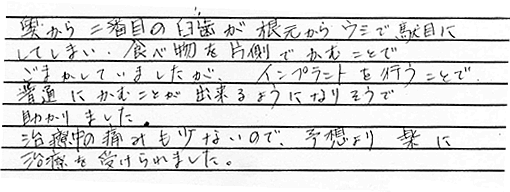 奥から二番目の臼歯が根元からウミで駄目に
してしまい、食べ物を片側でかむことで
ごまかしていましたが、インプラントを行うことで、
普通にかむことが出来るようになりそうで
助かりました。
治療中の痛みも少ないので、予想より楽に
治療を受けられました。